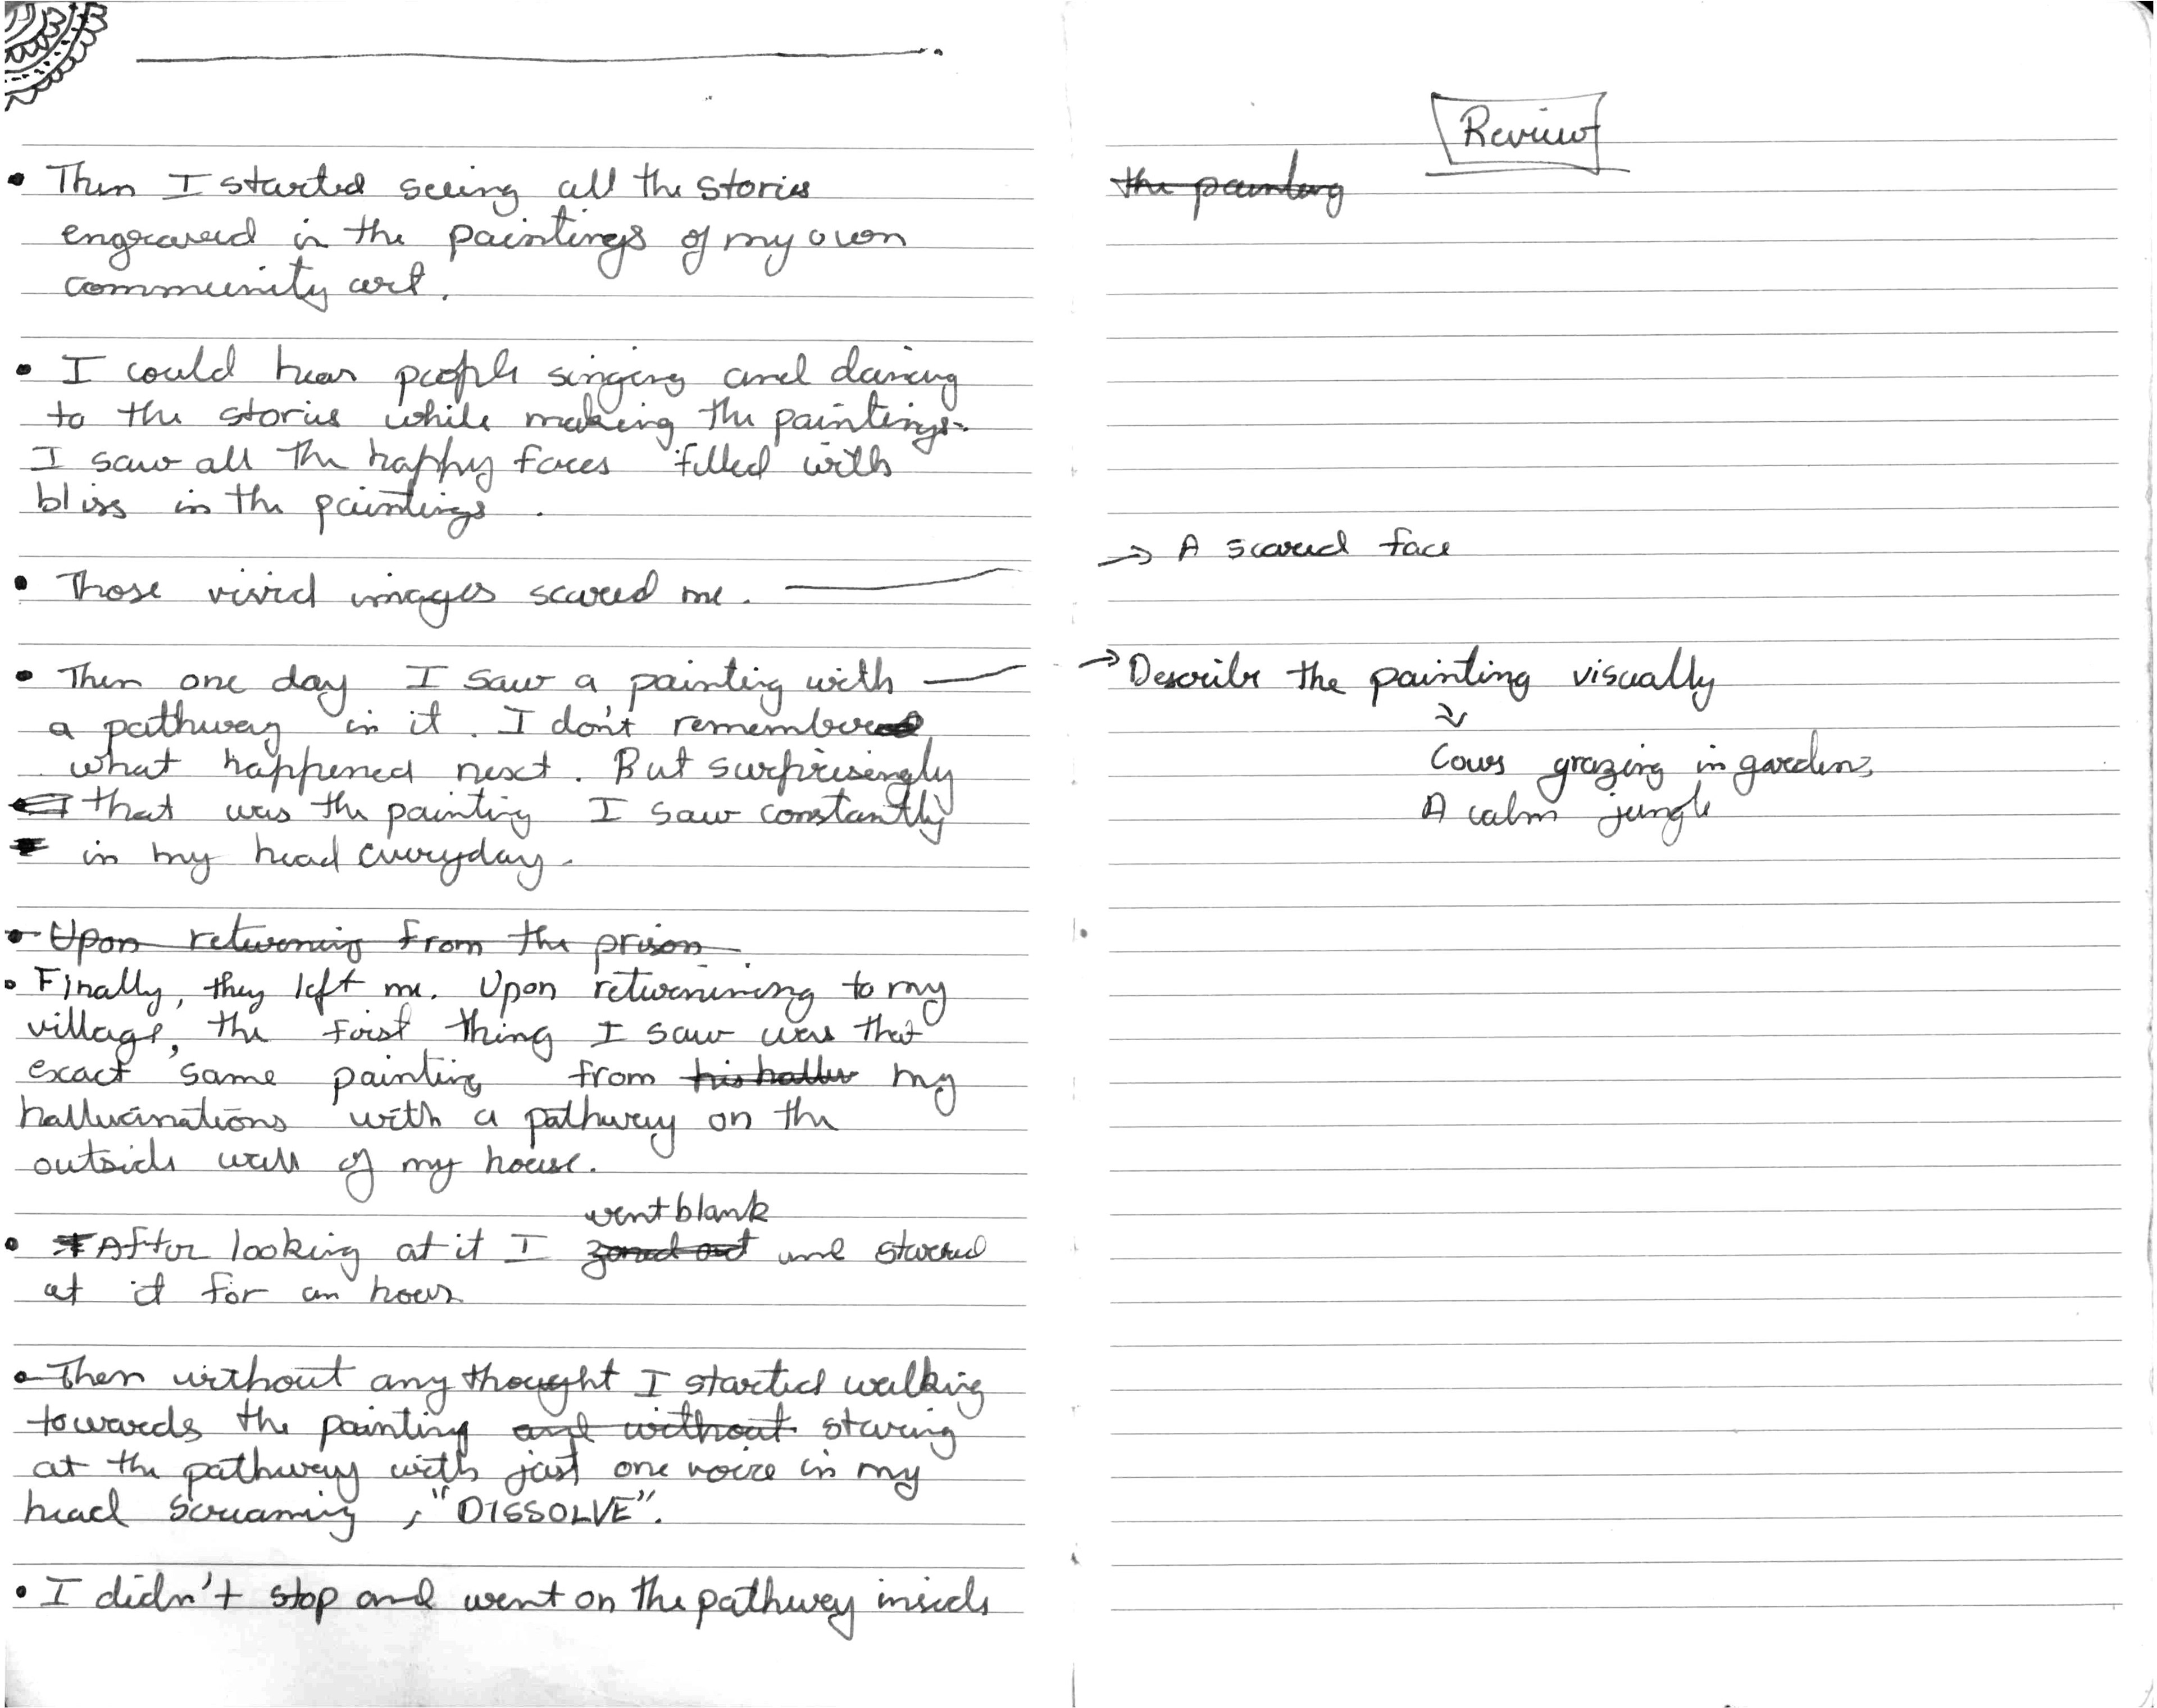 • Then I started seeing all the stories
engraved in the paintings of my own
community art.
• I could hear people singing and dancing
to the stories while making the paintings.
I saw all the happy faces filled with
bliss in the paintings.
• Those vivid images scared me.
• Then one day I saw a painting with
a pathway in it. I don't remember
what happened next. But surprisingly
that was the painting I saw constantly
in my head everyday.
• Upon returning from the prison
• Finally, they left me. Upon returnining to my
village, the first thing I saw was that
exact same painting from his hallu my
hallucinations with a pathway on the
outside wall of my house.
went blank
• After looking at it I zoned out and stared
at it for an hour
• Then without any thought I started walking
towards the painting and without staring
at the pathway with just one voice in my
head screaming, "DISSOLVE".
• I didn't stop and went on the pathway inside
Review
the painting
→ A scared face
→ Describe the painting visually
Cows grazing in gardens
A calm jungle